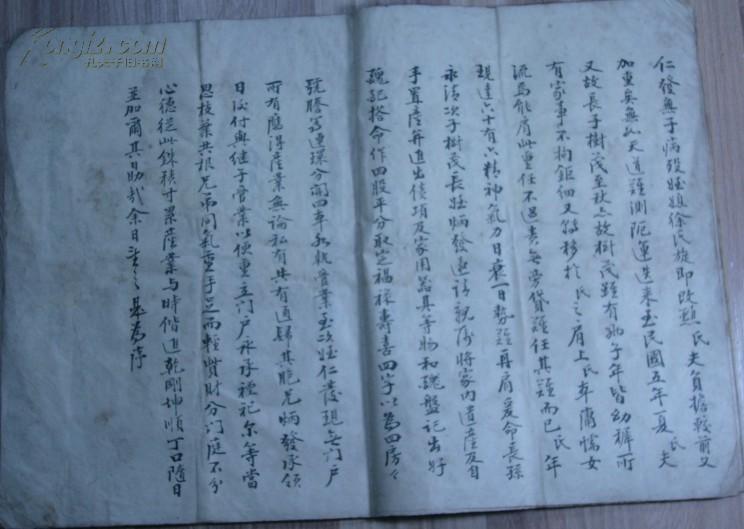 仁發無子病歿姪媳徐氏旋即改醮氏夫負擔較前又
加重矣無如天道難測阨運迭來至民國五年夏氏夫
又故長子樹茂至秋亦故樹茂雖有孫子年皆幼穉所
有家事不拘鉅細又移於氏之肩上氏本庸懦女
流焉能肩此重任不過責無旁貸難任其難而已氏年
現達六十有六精神氣力日衰一日勢難再肩爰命長孫
永清次子樹茂長姪炳發邀請親房將家內遺產及自
手置產并進出債項及家用器具等物和魂盤記出好
醜記搭合作四股平分取定福祿壽喜四字以為四房々
號謄寫連環分關四本各執管業至次姪仁發現無門戶
所有應得產業無論私有共有通歸其胞兄炳發承領
日後付與繼子管業以便重立門戶永承禋祀尔等當
思枝葉共根兄弟同氣重手足而輕貲財分門庭不分
心德從此銖積寸累產業与時偕進乾剛坤順丁口隨日
並加爾其勖哉余日望之是為序
孔夫子旧书网